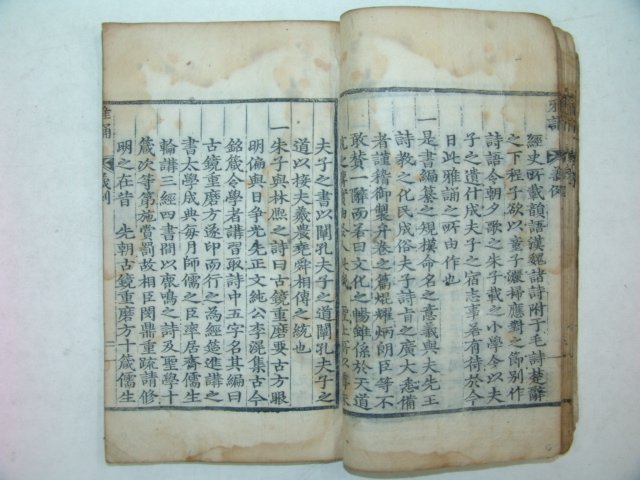 雅誦 義例
經史所載韻語漢魏諸詩附于毛詩楚辭
之下程子欲以童子灑掃應對之節別作
詩語令朝夕歌之朱子載之小學今以夫
子之遺什成夫子之宿志事若有待於今
日此雅誦之所由作也
一是書編纂之規模命名之意義與夫先王
詩教之化民成俗夫子詩旨之廣大悉備
者謹稽御製弁卷之篇焜耀炳朗臣等不
敢贅一辭而若曰文化之暢雖係於天道
夫子之書以闡孔夫子之道闡孔夫子之
道以接夫羲農堯舜相傳之統也
一朱子與林熙之詩曰古鏡重磨要古方眼
明偏與日爭光先正文純公李滉集古今
銘箴令學者講習取詩中五字名其編曰
古鏡重磨方遂印而行之爲經筵進講之
書太學成典每月師儒之臣率居齋儒生
輪講三經四書間以鹿鳴之詩及聖學十
箴次等第施賞罰故相臣閔鼎重疏請修
明之在昔 先朝古鏡重磨方十箴儒生
雅誦 義例 二